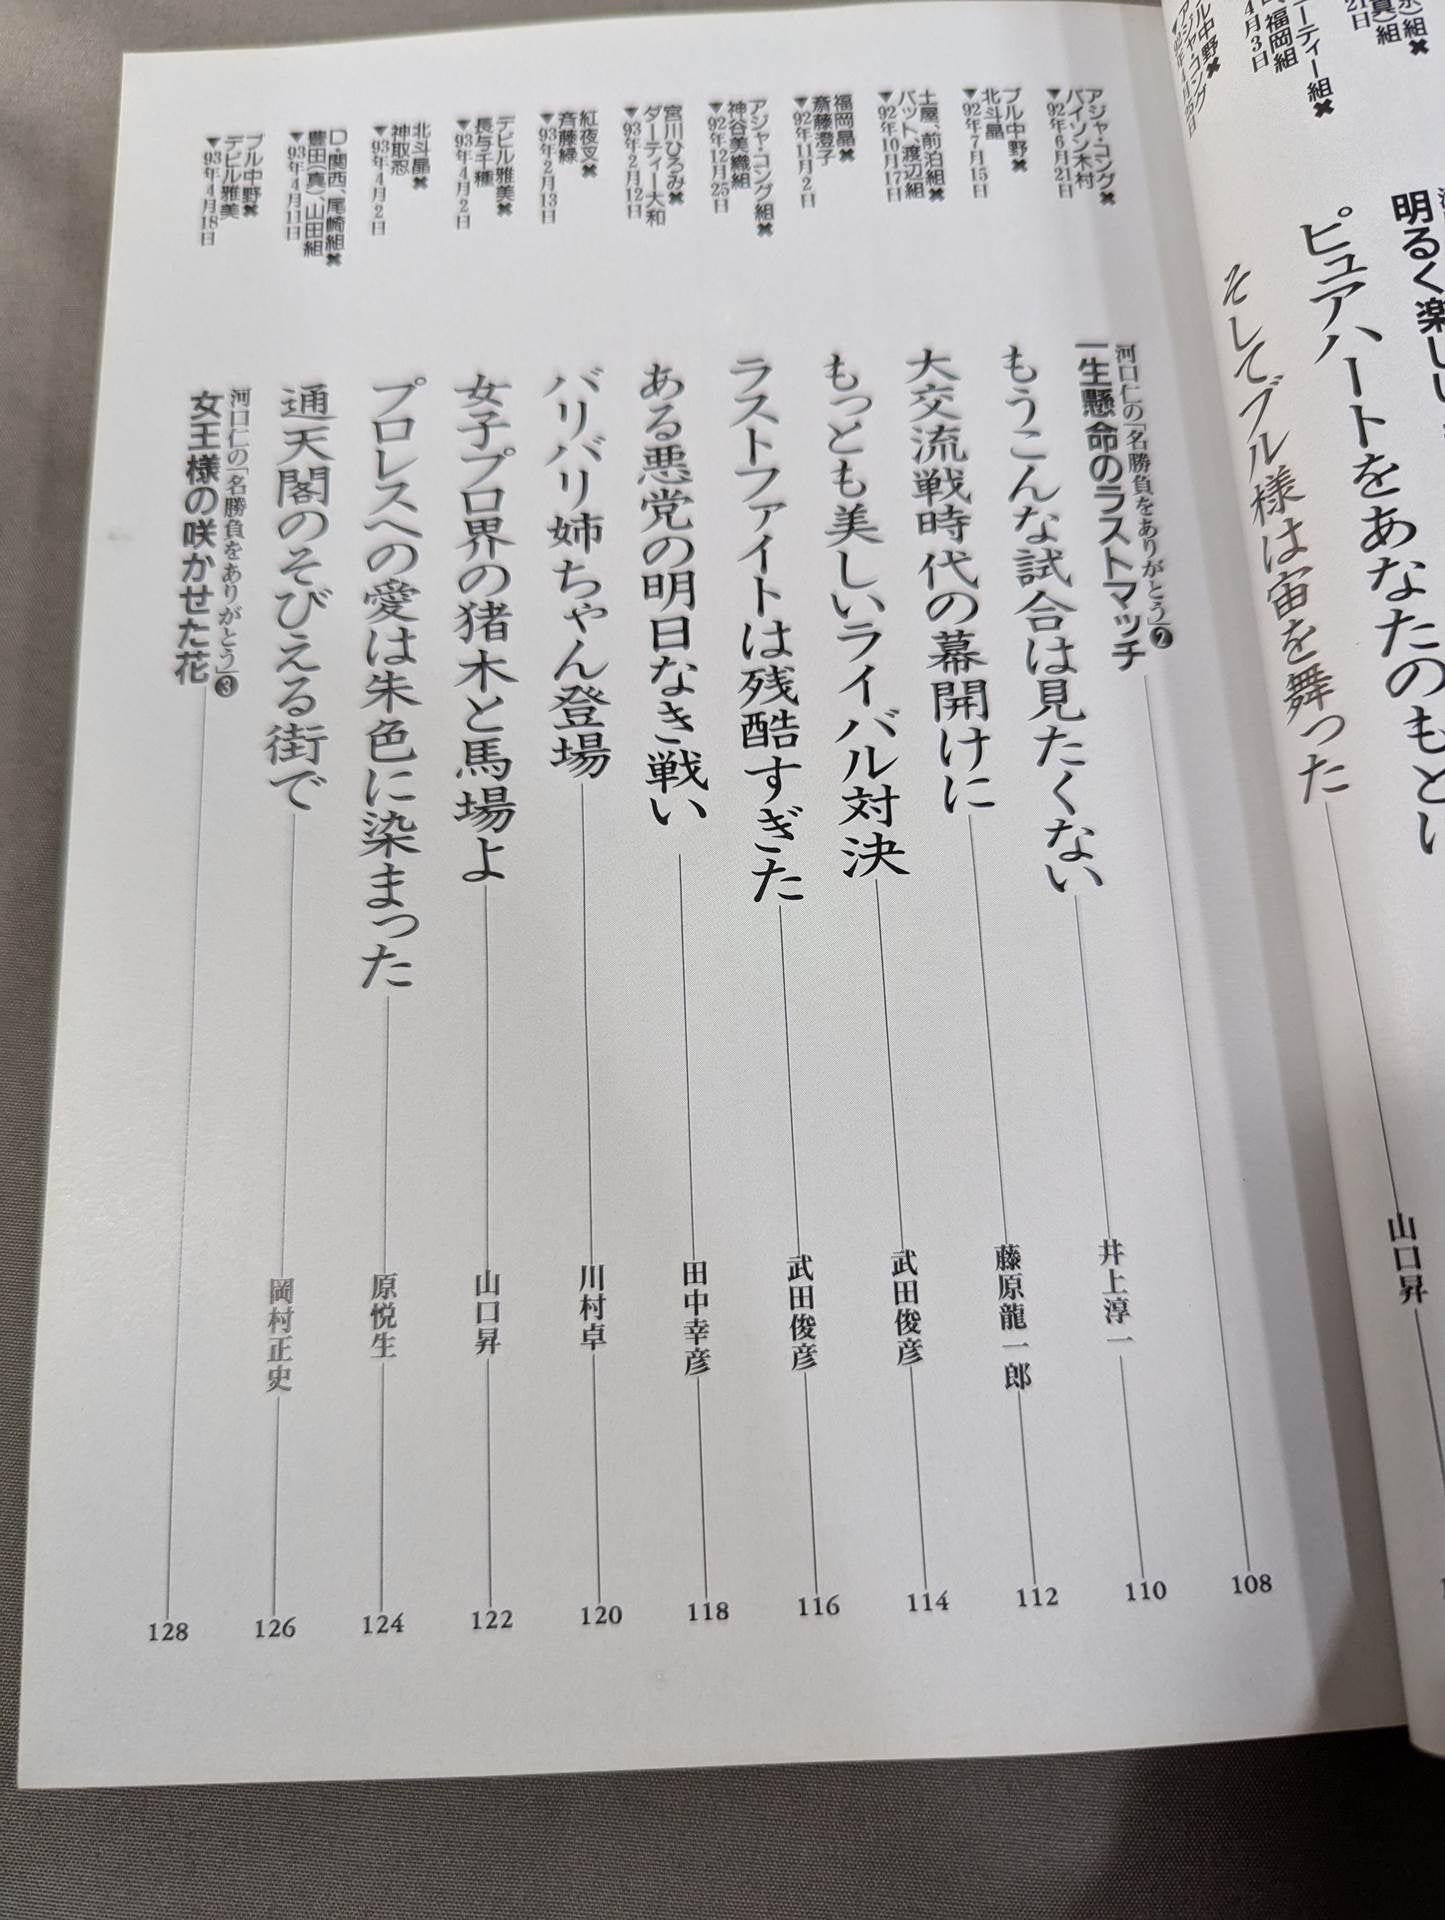 明るく楽しい
ピュアハートをあなたのもとい
山口昇
そしてブル様は宙を舞った
アジャ・コング✖
バイソン木村
▼92年6月21日
河口仁の「名勝負をありがとう」❷
一生懸命のラストマッチ
108
ブル中野✖
北斗晶
▼92年7月15日
もうこんな試合は見たくない
井上淳一
110
土屋、前泊組✖
バット、渡辺組
▼92年10月17日
大交流戦時代の幕開けに
藤原龍一郎
112
福岡晶✖
斎藤澄子
▼92年11月2日
もっとも美しいライバル対決
武田俊彦
114
アジャ・コング組✖
神谷美織組
▼92年12月25日
ラストファイトは残酷すぎた
武田俊彦
116
宮川ひろみ✖
ダーティー大和
▼93年2月12日
ある悪党の明日なき戦い
田中幸彦
118
紅夜叉✖
斉藤緑
▼93年2月13日
バリバリ姉ちゃん登場
川村卓
120
デビル雅美✖
長与千種
▼93年4月2日
女子プロ界の猪木と馬場よ
山口昇
122
北斗晶✖
神取忍
▼93年4月2日
プロレスへの愛は朱色に染まった
原悦生
124
D・関西、尾崎組✖
豊田(真)、山田組
▼93年4月11日
通天閣のそびえる街で
岡村正史
126
ブル中野✖
デビル雅美
▼93年4月18日
河口仁の「名勝負をありがとう」❸
女王様の咲かせた花
128